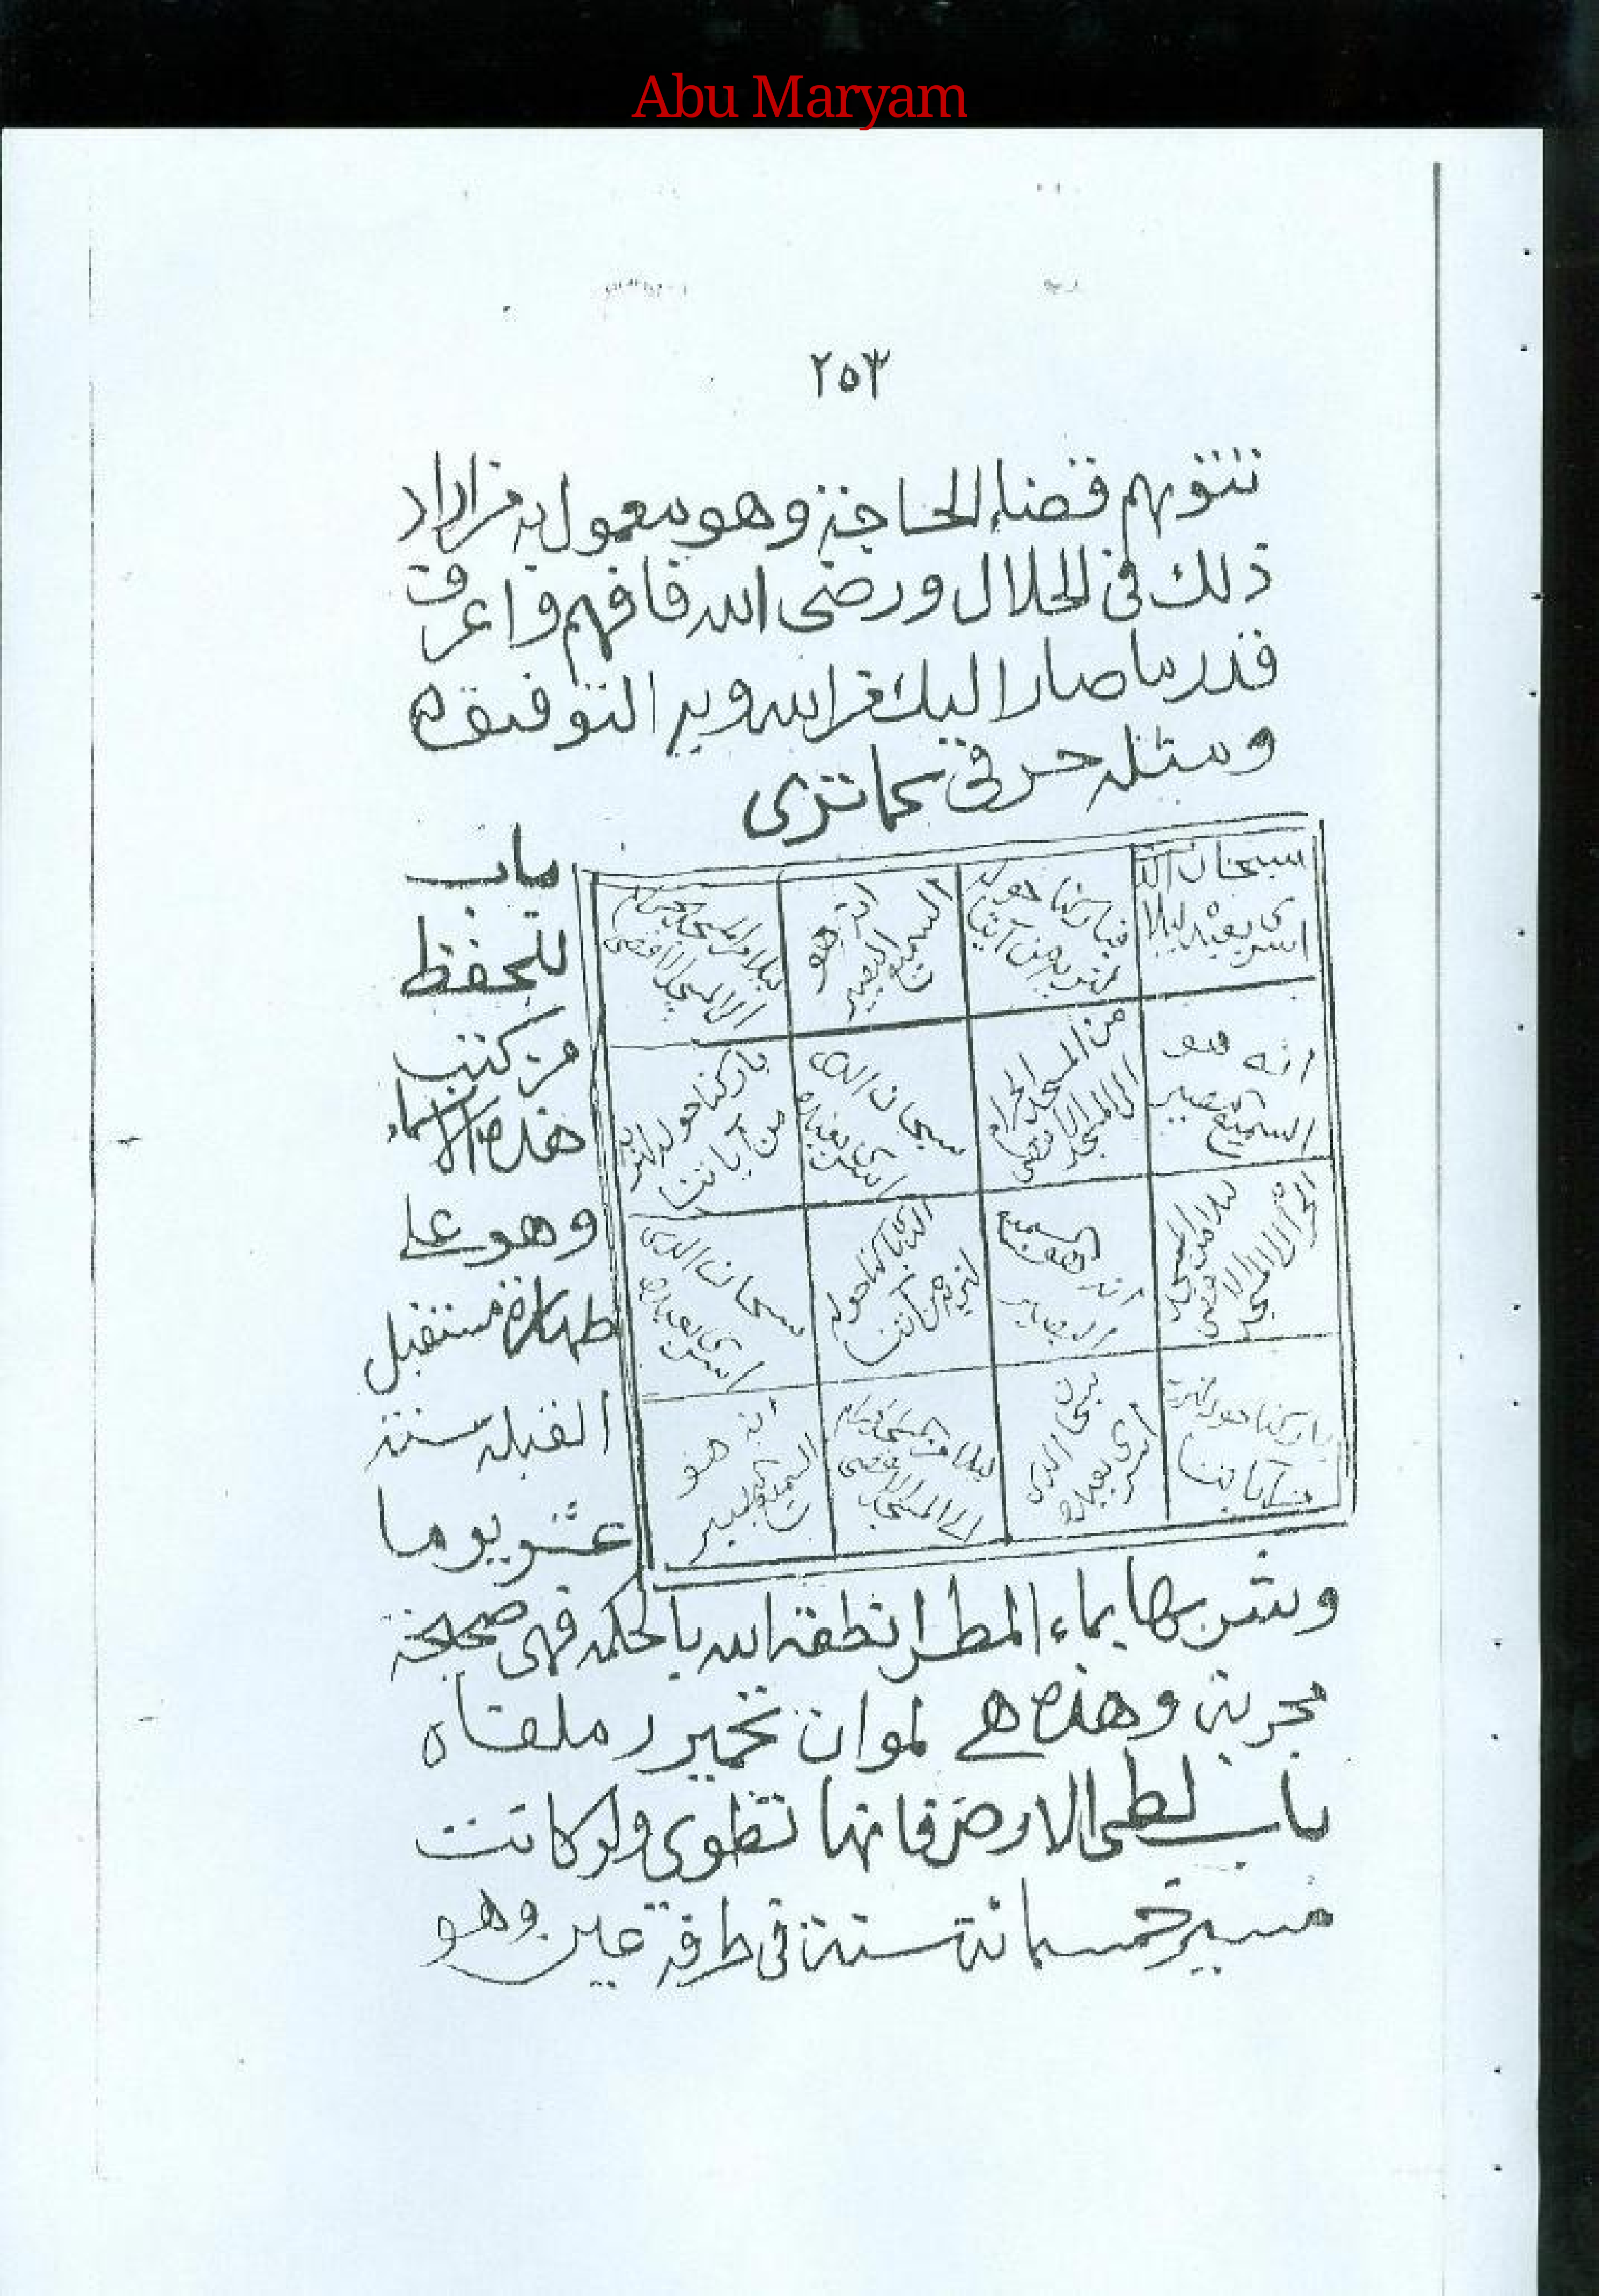 Abu Maryam
٢٥٣
قضاء الحاجة وهو معمول به من اراد
ذلك فى الحلال ورضى الله فافهم واعرف
قدر ما صار اليك من الله وبه التوفيق
ومثله حرفى كما ترى
سبحان الذى اسرى بعبده ليلا
باركنا حوله لنريه من آيتنا
انه هو السميع البصير
ليلا من المسجد الحرام الى المسجد الاقصى
انه هو السميع البصير
من المسجد الحرام الى المسجد الاقصى
سبحان الذى اسرى بعبده
باركنا حوله لنريه من آياتنا
ليلا من المسجد الحرام الى المسجد الاقصى
انه هو السميع البصير
الذى باركنا حوله لنريه من آيتنا
سبحان الذى اسرى بعبده
باركنا حوله لنريه من آياتنا
سبحان الذى اسرى بعبده
ليلا من المسجد الحرام الى المسجد الاقصى
انه هو السميع البصير
باب
للحفظ
من كتب
هذه الاسماء
وهو على
طهارة مستقبل
القبله ستة
عشر يوما
وشربها بماء المطر انطقه الله بالحكمه فهى صحيحة
مجربة وهذه هى
باب لطى الارض فانها تطوى ولو كانت
مسير خمسمائة سنة فى طرفة عين وهو